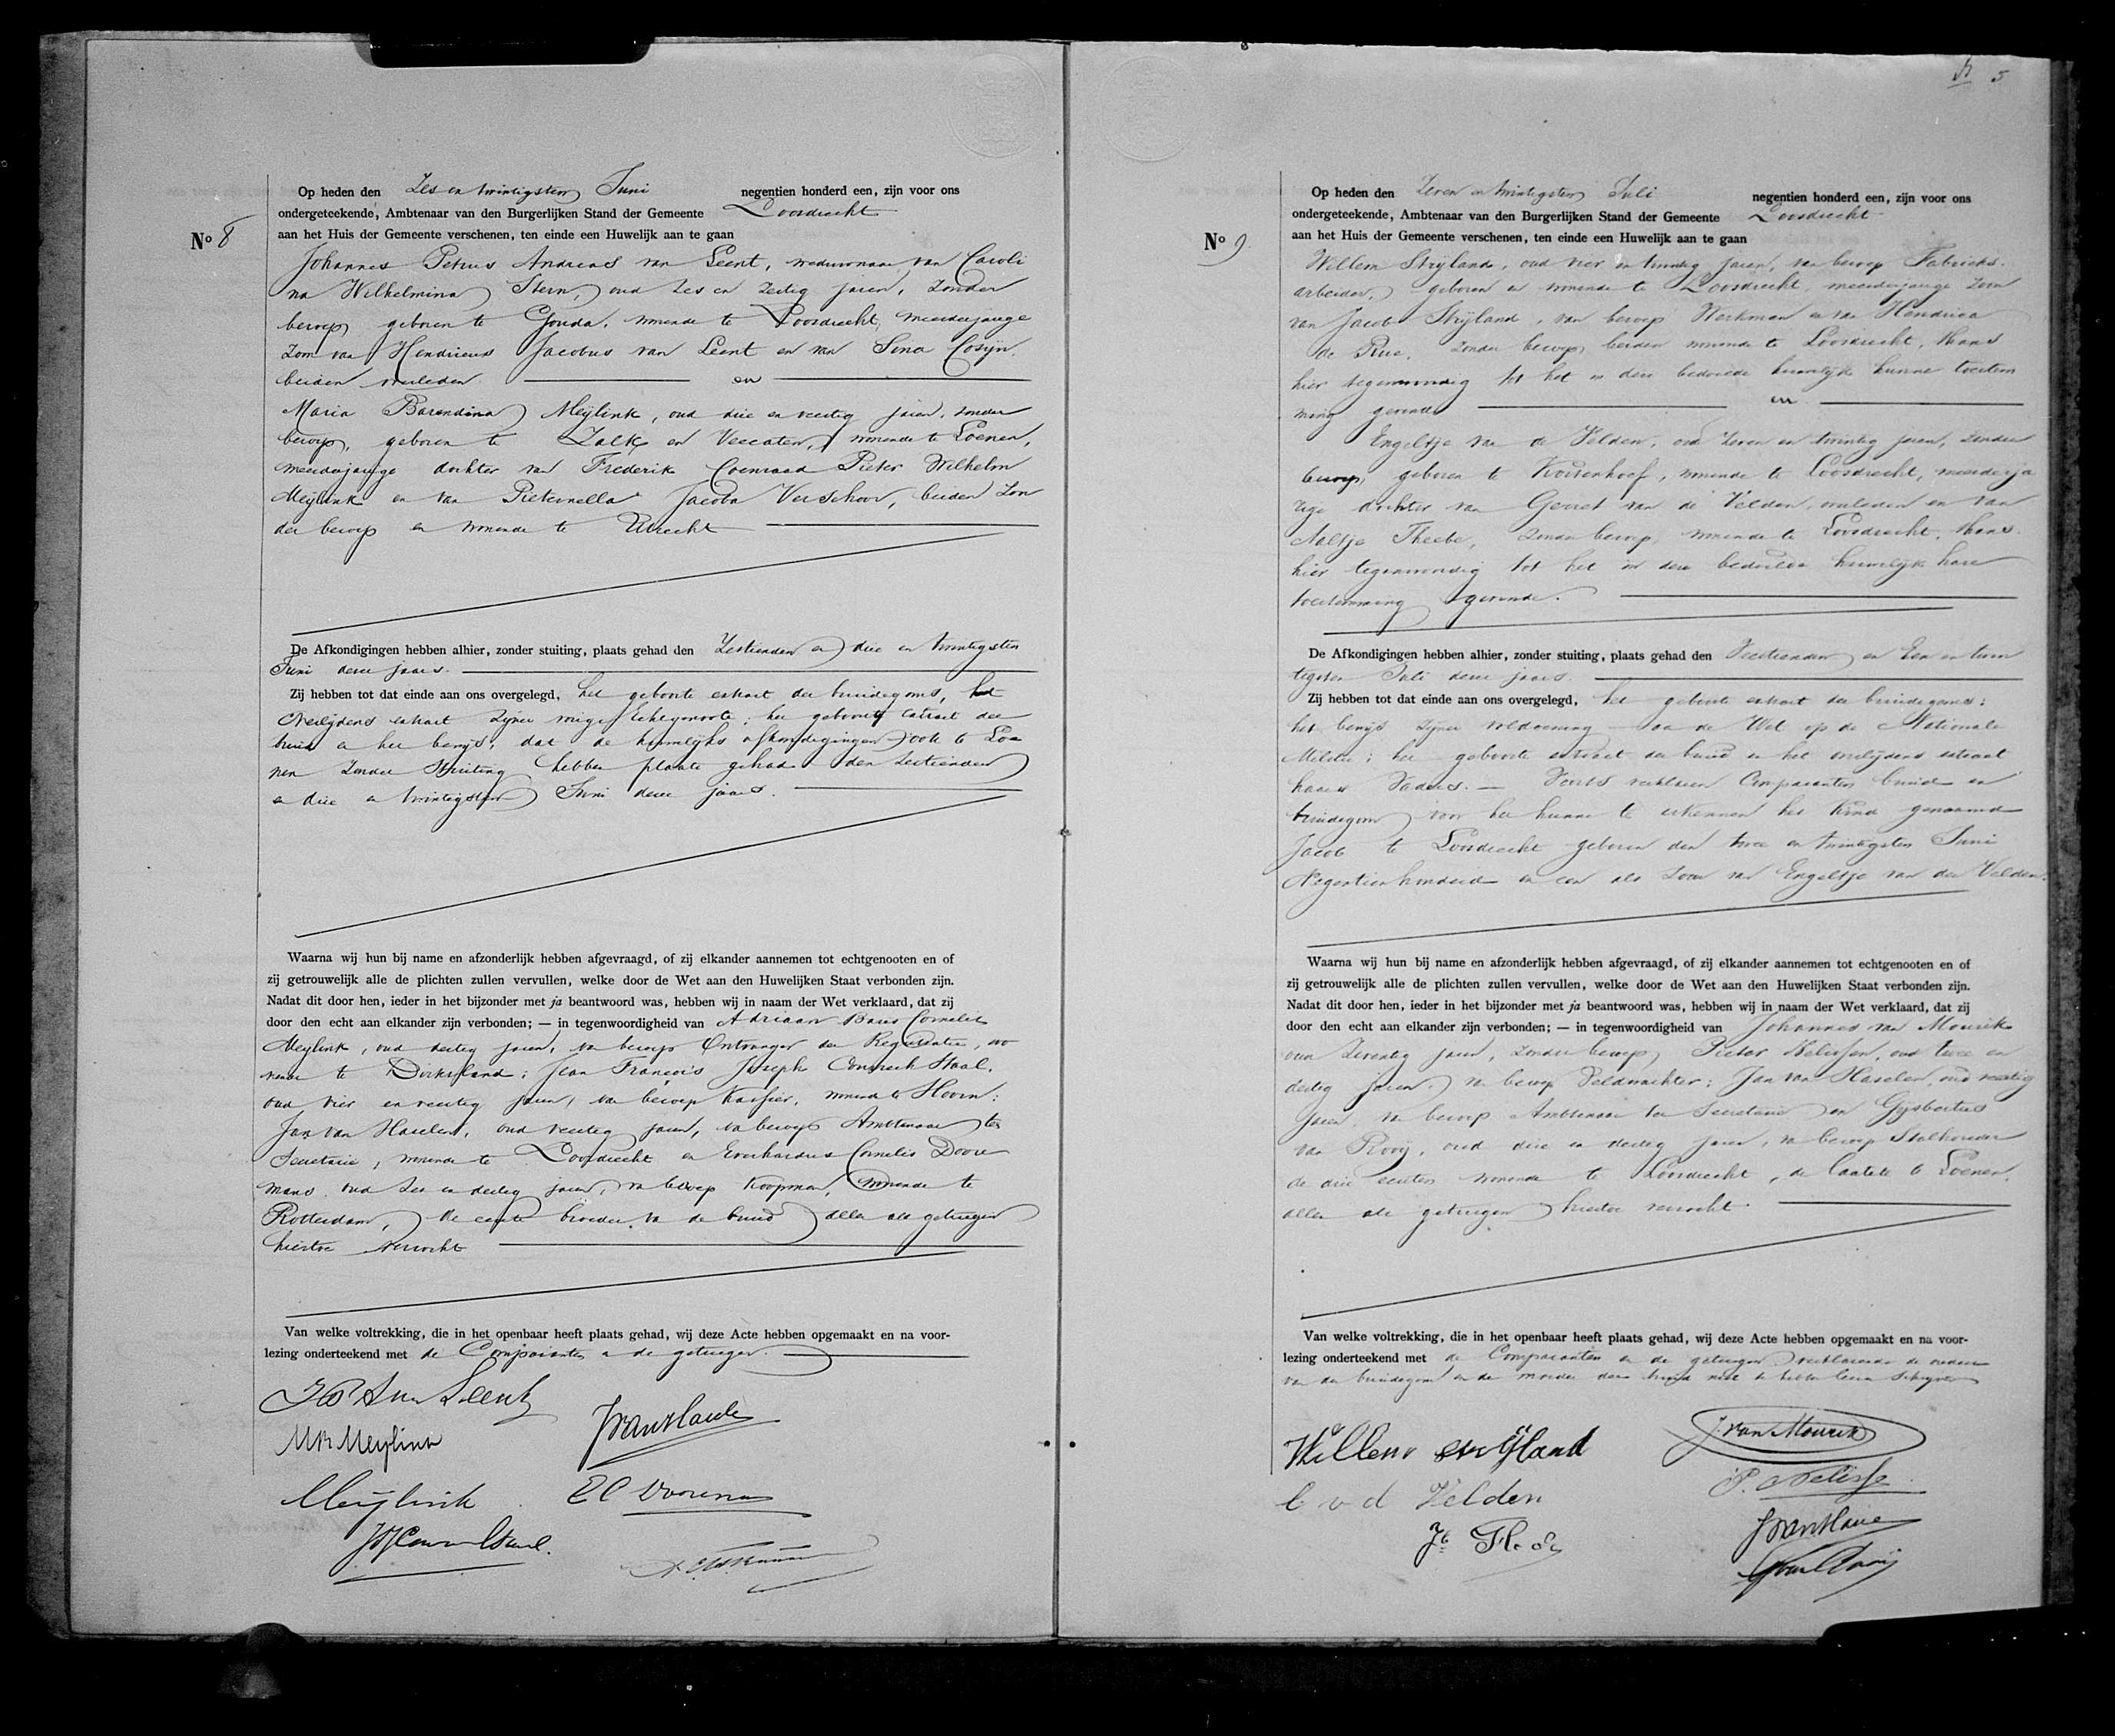 Op heden den Zes en twintigsten Juni negentien honderd een, zijn voor ons
ondergeteekende, Ambtenaar van den Burgerlijken Stand der Gemeente Loosdrecht
aan het Huis der Gemeente verschenen, ten einde een Huwelijk aan te gaan
No 8
Johannes Petrus Andreas van Leent, weduwnaar van Caroli
na Wilhelmina Stern, oud zes en zestig jaren, zonder
beroep, geboren te Gouda, wonende te Loosdrecht, meerderjarige
zoon van Hendricus Jacobus van Leent en van Sena Cosijn.
beiden overleden. en
Maria Barendina Meylink, oud drie en veertig jaren, zonder
beroep, geboren te Zalk en Veecaten, wonende te Loenen,
meerderjarige dochter van Frederik Coenraad Pieter Wilhelm
Meylink en van Pieternella Jacoba Verschoor, beiden zon
der beroep en wonende te Utrecht
De Afkondigingen hebben alhier, zonder stuiting, plaats gehad den Zestienden en drie en twintigsten
Juni dezer jaars.
Zij hebben tot dat einde aan ons overgelegd, het geboorte extract des bruidegoms, het
overlijdens extract zijner vorige Echtgenoote; het geboorte extract der
bruid en het bewijs, dat de huwelijks afkondigingen ook te Loe
nen zonder stuiting hebben plaats gehad den zestienden
en drie en twintigsten Juni dezer jaars.
Waarna wij hun bij name en afzonderlijk hebben afgevraagd, of zij elkander aannemen tot echtgenooten en of
zij getrouwelijk alle de plichten zullen vervullen, welke door de Wet aan den Huwelijken Staat verbonden zijn.
Nadat dit door hen, ieder in het bijzonder met ja beantwoord was, hebben wij in naam der Wet verklaard, dat zij
door den echt aan elkander zijn verbonden; — in tegenwoordigheid van Adriaan Cornelis
Meylink, oud dertig jaren, van beroep Ontvanger der Registratie, wo
nende te Dirksland; Jean François Joseph Staal,
oud vier en veertig jaren, van beroep Kassier, wonende te
Jan van Haselen, oud veertig jaren, van beroep Ambtenaar ter
Secretarie, wonende te Loosdrecht en Everhardus Cornelis Doore
mans, oud zes en dertig jaren, van beroep Koopman, wonende te
Rotterdam, de eerste broeder van de bruid allen als getuigen
hiertoe verzocht
Van welke voltrekking, die in het openbaar heeft plaats gehad, wij deze Acte hebben opgemaakt en na voor-
lezing onderteekend met de Comparanten en de getuigen.
van Leent
MB Meylink
Meylink
5
Op heden den Zeven en twintigsten Juli negentien honderd een, zijn voor ons
ondergeteekende, Ambtenaar van den Burgerlijken Stand der Gemeente Loosdrecht
aan het Huis der Gemeente verschenen, ten einde een Huwelijk aan te gaan
No 9.
Willem Strijland, oud vier en twintig jaren, van beroep Fabrieks-
arbeider, geboren en wonende te Loosdrecht, meerderjarige zoon
van Jacob Strijland, van beroep Werkman en van Hendrica
de Rue, zonder beroep, beiden wonende te Loosdrecht, thans
hier tegenwoordig tot het in deze bedoelde huwelijk hunne toestem
ming gevende en
Engeltje van de Velden, oud zeven en twintig jaren, zonder
beroep, geboren te Kortenhoef, wonende te Loosdrecht, meerderja
rige dochter van Gerret van de Velden, overleden en van
Aaltje Theebe, zonder beroep, wonende te Loosdrecht, thans
hier tegenwoordig tot het in deze bedoelde huwelijk hare
toestemming gevende.
De Afkondigingen hebben alhier, zonder stuiting, plaats gehad den Veertienden en Een en twin
tigsten Juli dezer jaars.
Zij hebben tot dat einde aan ons overgelegd, het geboorte extract des bruidegoms;
het bewijs zijner voldoening aan de Wet op de Nationale
Militie; het geboorte extract der bruid en het overlijdens extract
haars Vaders. — Voorts verklaren Comparanten bruid en
bruidegom voor het hunne te erkennen het kind genaamd
Jacob te Loosdrecht geboren den twee en twintigsten Juni
Negentienhonderd en een als zoon van Engeltje van der Velden.
Waarna wij hun bij name en afzonderlijk hebben afgevraagd, of zij elkander aannemen tot echtgenooten en of
zij getrouwelijk alle de plichten zullen vervullen, welke door de Wet aan den Huwelijken Staat verbonden zijn.
Nadat dit door hen, ieder in het bijzonder met ja beantwoord was, hebben wij in naam der Wet verklaard, dat zij
door den echt aan elkander zijn verbonden; — in tegenwoordigheid van Johannes van Mourik
oud zeventig jaren, zonder beroep, Pieter Nelissen, oud twee en
dertig jaren, van beroep Veldwachter; Jan van Haselen, oud veertig
jaren, van beroep Ambtenaar ter Secretarie en Gijsbertus
van Rooij, oud drie en dertig jaren, van beroep Stalhouder
de drie eersten wonende te Loosdrecht, de laatste te Loenen,
allen als getuigen hiertoe verzocht.
Van welke voltrekking, die in het openbaar heeft plaats gehad, wij deze Acte hebben opgemaakt en na voor-
lezing onderteekend met de Comparanten en de getuigen verklarende de ouders
van den bruidegom en de moeder der bruid niet te hebben leeren schrijven
Willem Strijland
E v d Velden
J. van Mourik
P. Nelisse